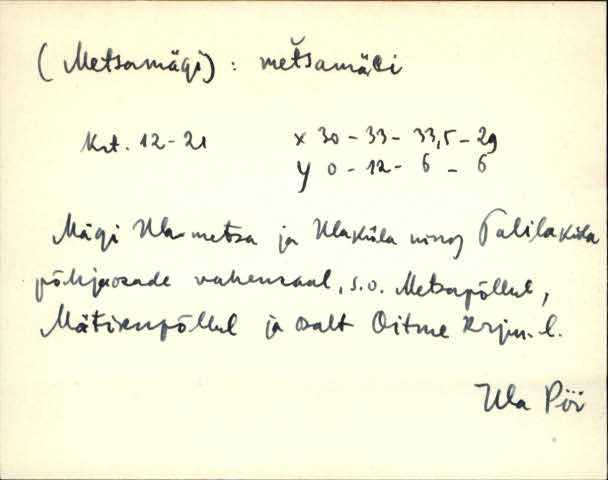 (Metsamägi): met̆samäGi
Krt. 12-21 x 30 - 33 - 33,5 - 29
y 0 - 12 - 6 - 6
Mägi Ula metsa ja Ulaküla ning Palilaküla
põhjaosade vahemaal, s.o. Metsapõllul,
Mätiknpõllul ja osalt Oitme krjm. l.
Ula Pöi